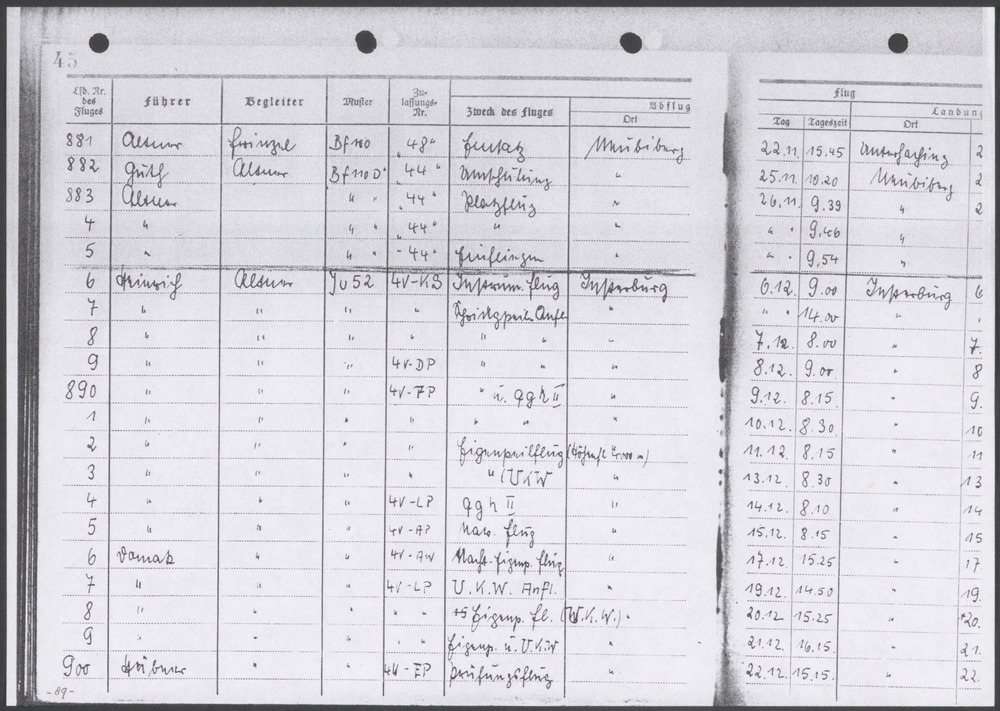 45
Lfd. Nr. des Fluges Führer Begleiter Muster Zulassungs-Nr. Zweck des Fluges Abflug Ort Flug Tag Tageszeit Landung Ort
881 Altner Bf 110 "48" Einsatz Neubiberg 22.11. 15.45 Unterhaching 2
882 Guth Altner Bf 110 D "44" Umschulung " 25.11. 10.20 Neubiberg 2
883 Altner " " "44" Platzflug " 26.11. 9.39 " 2
4 " " " "44" " " " " 9.46 "
5 " " " "44" Einfliegen " " " 9.54 "
6 Heinrich Altner Ju 52 4V-KS Instrum. flug Insterburg 6.12. 9.00 Insterburg 6
7 " " " " " " " 14.00 "
8 " " " " " " " 7.12. 8.00 " 7.
9 " " " 4V-DP " " " 8.12. 9.00 " 8
890 " " " 4V-FP " u. qgh II " 9.12. 8.15 " 9.
1 " " " " " " " 10.12. 8.30 " 10
2 " " " " Eigenpeilflug 11.12. 8.15 " 11
3 " " " " " (UKW " 13.12. 8.30 " 13
4 " " " 4V-LP qgh II " 14.12. 8.10 " 14
5 " " " 4V-AP Nav. flug " 15.12. 8.15 " 15
6 " " 4V-AW Nacht-Eigenp. flug " 17.12. 15.25 " 17.
7 " " " 4V-LP U.K.W. Anfl. " 19.12. 14.50 " 19.
8 " " " " " Eigenp. fl. (U.K.W.) " 20.12. 15.25 " 20.
9 " " " " " Eigenp. u. UKW " 21.12. 16.15 " 21.
900 Hübner " " 4V-FP Prüfungsflug " 22.12. 15.15. " 22.
-89-